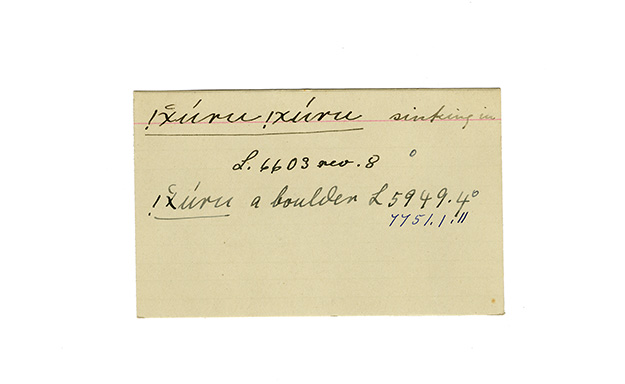 !x̆úru !xúru sinking in
L. 6603 rev. 8 °
!x̆úru a boulder L 5949.4°
7751.1.11